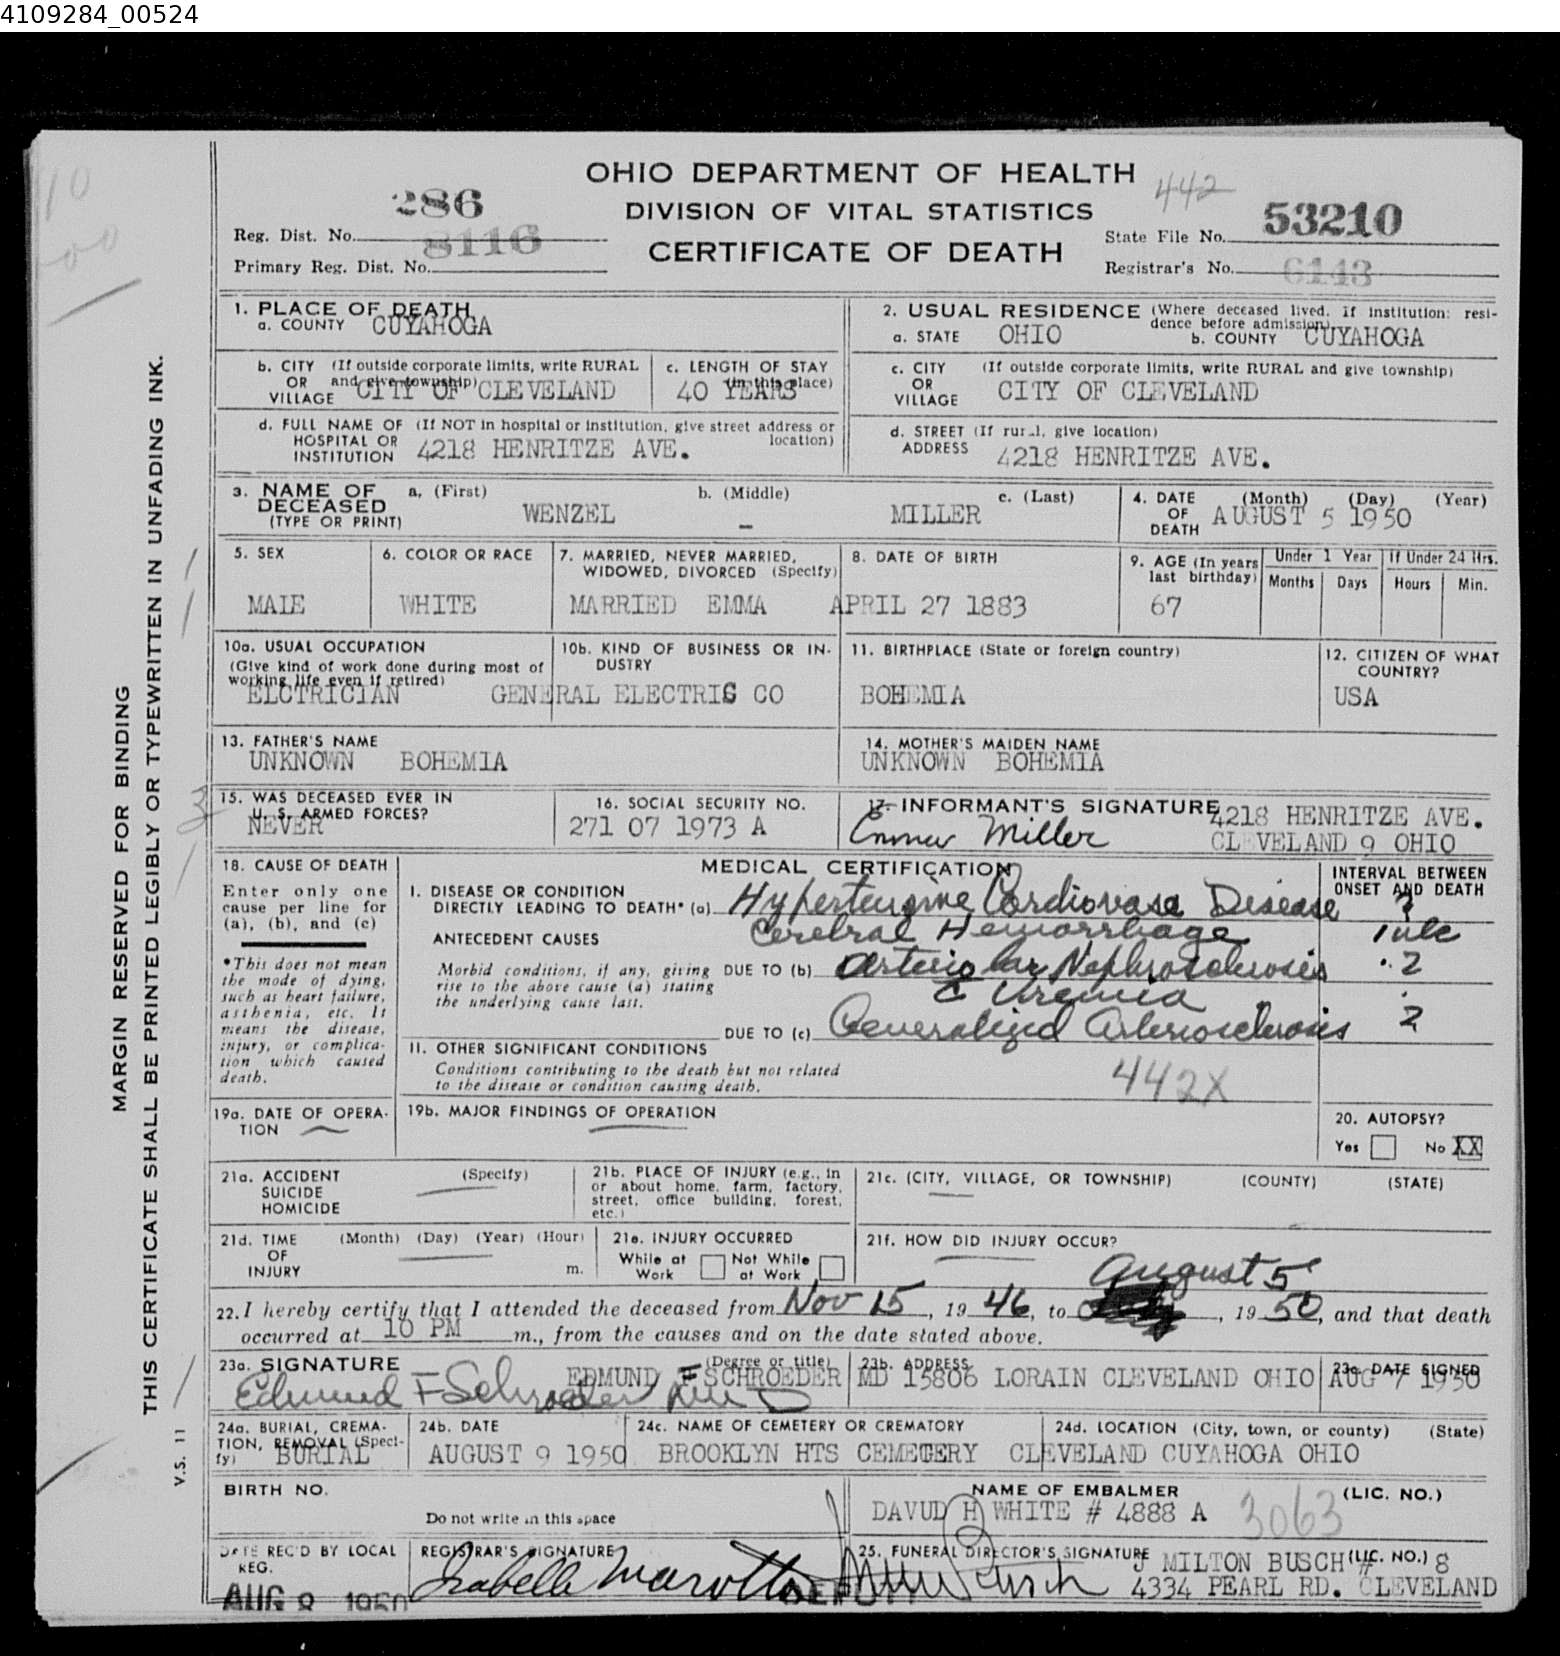 4109284_00524
OHIO DEPARTMENT OF HEALTH
DIVISION OF VITAL STATISTICS
CERTIFICATE OF DEATH
442
Reg. Dist. No. 286
Primary Reg. Dist. No. 8116
State File No. 53210
Registrar's No. 6143
MARGIN RESERVED FOR BINDING
THIS CERTIFICATE SHALL BE PRINTED LEGIBLY OR TYPEWRITTEN IN UNFADING INK.
V.S. 11
1. PLACE OF DEATH
a. COUNTY CUYAHOGA
2. USUAL RESIDENCE (Where deceased lived. If institution: residence before admission)
a. STATE OHIO b. COUNTY CUYAHOGA
b. CITY OR VILLAGE (If outside corporate limits, write RURAL and give township) CITY OF CLEVELAND
c. LENGTH OF STAY (in this place) 40 YEARS
c. CITY OR VILLAGE (If outside corporate limits, write RURAL and give township) CITY OF CLEVELAND
d. FULL NAME OF HOSPITAL OR INSTITUTION (If NOT in hospital or institution, give street address or location) 4218 HENRITZE AVE.
d. STREET ADDRESS (If rural, give location) 4218 HENRITZE AVE.
3. NAME OF DECEASED (TYPE OR PRINT) a. (First) WENZEL b. (Middle) – c. (Last) MILLER
4. DATE OF DEATH (Month) (Day) (Year) AUGUST 5 1950
5. SEX MAIE
6. COLOR OR RACE WHITE
7. MARRIED, NEVER MARRIED, WIDOWED, DIVORCED (Specify) MARRIED EMMA
8. DATE OF BIRTH APRIL 27 1883
9. AGE (In years last birthday) 67
Under 1 Year Months Days
If Under 24 Hrs. Hours Min.
10a. USUAL OCCUPATION (Give kind of work done during most of working life even if retired) ELCTRICIAN
10b. KIND OF BUSINESS OR INDUSTRY GENERAL ELECTRIC CO
11. BIRTHPLACE (State or foreign country) BOHEMIA
12. CITIZEN OF WHAT COUNTRY? USA
13. FATHER'S NAME UNKNOWN BOHEMIA
14. MOTHER'S MAIDEN NAME UNKNOWN BOHEMIA
15. WAS DECEASED EVER IN U. S. ARMED FORCES? NEVER
16. SOCIAL SECURITY NO. 271 07 1973 A
17. INFORMANT'S SIGNATURE Emma Miller 4218 HENRITZE AVE.
CLEVELAND 9 OHIO
18. CAUSE OF DEATH
Enter only one cause per line for (a), (b), and (c)
*This does not mean the mode of dying, such as heart failure, asthenia, etc. It means the disease, injury, or complication which caused death.
MEDICAL CERTIFICATION
INTERVAL BETWEEN ONSET AND DEATH
I. DISEASE OR CONDITION DIRECTLY LEADING TO DEATH* (a) Hypertensive Cardiovasc Disease ?
Cerebral Hemorrhage 1 wk
ANTECEDENT CAUSES
Morbid conditions, if any, giving rise to the above cause (a) stating the underlying cause last.
DUE TO (b) Arteriolar Nephrosclerosis 2
c Uremia
DUE TO (c) Generalized Arteriosclerosis 2
II. OTHER SIGNIFICANT CONDITIONS
Conditions contributing to the death but not related to the disease or condition causing death.
442X
19a. DATE OF OPERATION
19b. MAJOR FINDINGS OF OPERATION
20. AUTOPSY?
Yes No XX
21a. ACCIDENT SUICIDE HOMICIDE (Specify)
21b. PLACE OF INJURY (e.g., in or about home, farm, factory, street, office building, forest, etc.)
21c. (CITY, VILLAGE, OR TOWNSHIP) (COUNTY) (STATE)
21d. TIME OF INJURY (Month) (Day) (Year) (Hour) m.
21e. INJURY OCCURRED
While at Work Not While at Work
21f. HOW DID INJURY OCCUR?
22. I hereby certify that I attended the deceased from Nov 15, 1946, to August 5, 1950, and that death
occurred at 10 PM m., from the causes and on the date stated above.
23a. SIGNATURE (Degree or title) Edmund F Schroeder MD EDMUND F SCHROEDER MD
23b. ADDRESS 15806 LORAIN CLEVELAND OHIO
23c. DATE SIGNED AUG 7 1950
24a. BURIAL, CREMATION, REMOVAL (Specify) BURIAL
24b. DATE AUGUST 9 1950
24c. NAME OF CEMETERY OR CREMATORY BROOKLYN HTS CEMETERY
24d. LOCATION (City, town, or county) (State) CLEVELAND CUYAHOGA OHIO
BIRTH NO.
Do not write in this space
NAME OF EMBALMER (LIC. NO.)
DAVUD H WHITE # 4888 A 3063
DATE REC'D BY LOCAL REG. AUG 8 1950
REGISTRAR'S SIGNATURE Isabelle Marotto DEPUTY
25. FUNERAL DIRECTOR'S SIGNATURE (LIC. NO.) J MILTON BUSCH # 8
4334 PEARL RD. CLEVELAND